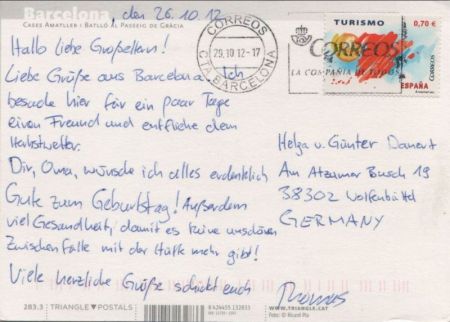 Barcelona, den 26.10.12
CASES AMATLLER I BATLLÓ A PASSEIG DE GRÀCIA
Hallo liebe Großeltern!
Liebe Grüße aus Barcelona. Ich
besuche hier für ein paar Tage
einen Freund und entfliehe dem
Herbstwetter.
Dir, Oma, wünsche ich alles erdenklich
Gute zum Geburtstag! Außerdem
viel Gesundheit, damit es keine unschönen
Zwischenfälle mit der Hüfte mehr gibt!
Viele herzliche Grüße schickt euch
Thomas
CORREOS
29.10.12-17
BARCELONA
TURISMO
0,70 €
CORREOS
LA COMPAÑIA DE TODOS
ESPAÑA
CORREOS
Helga u. Günter Danert
Am Atzumer Busch 19
38302 Wolfenbüttel
GERMANY
283.3
TRIANGLE POSTALS
WWW.TRIANGLE.CAT
Foto: © Ricard Pla